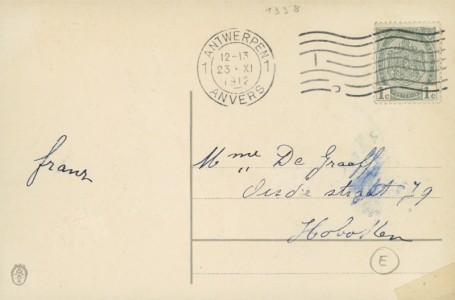 1338
ANTWERPEN
1 12-13 1
23 · XI
1912
ANVERS
1c 1c
franz
Mme De Graeff
" straat 79
Hoboken
E